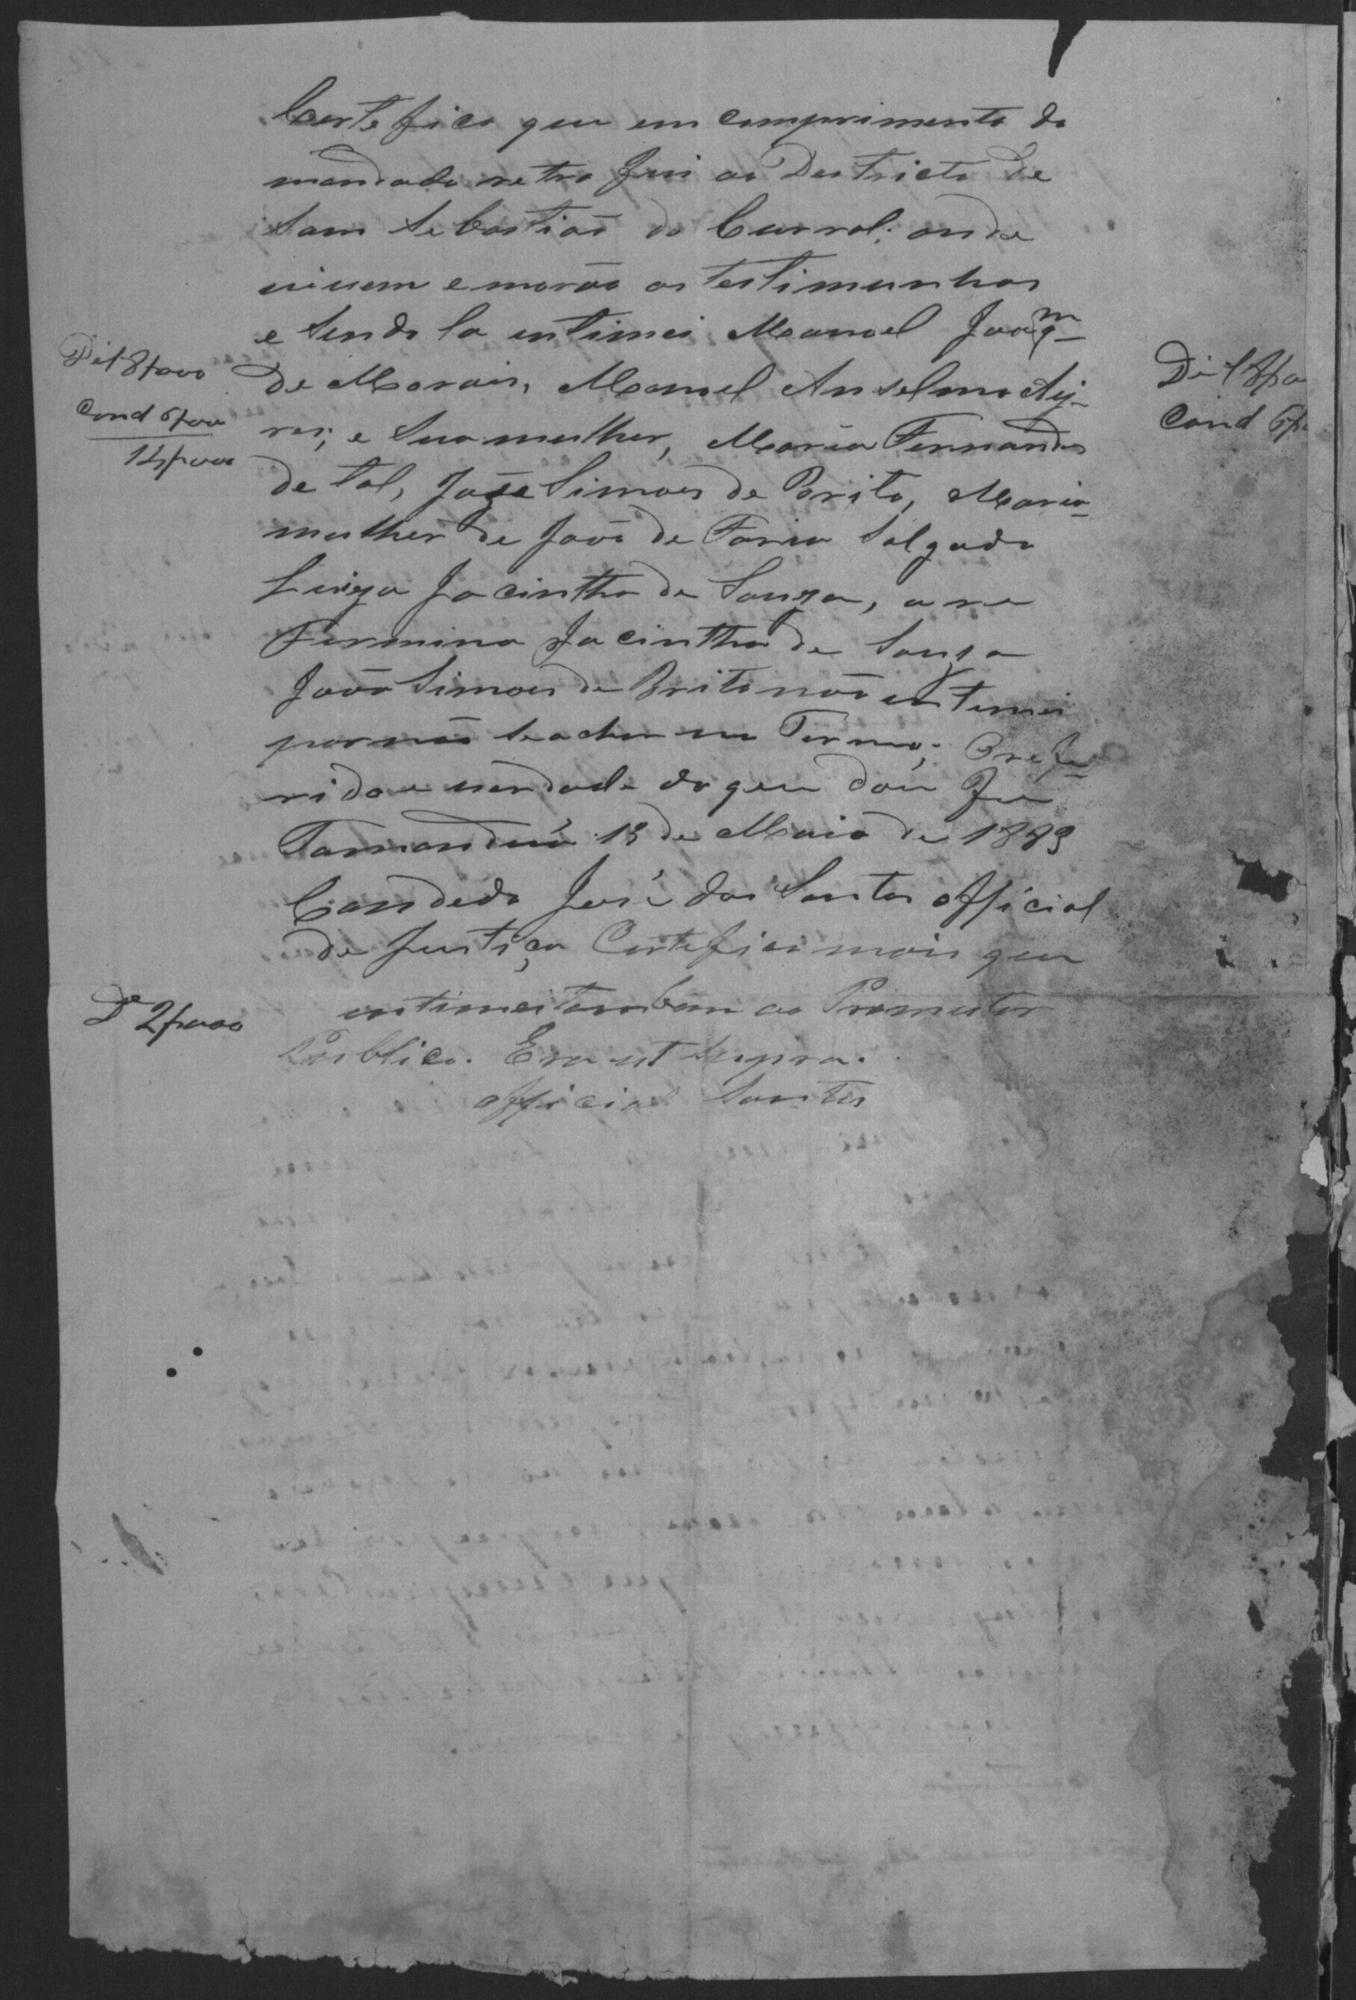 Certefico que em comprimento do
mandado retro fui ao Destricto de
Sam Sebastião do Curral; onde
vivem e morão as testimunhas
e sendo la intimei Manoel Joaqm
de Morais, Manoel Anselmo Ay-
res; e sua mulher, Maria Fernandes
de tal, José Simões de Brito, Maria
mulher de João de Faria Salgado
Luiza Jacintha de Souza, a re
Fermina Jacintha de Souza
João Simões de Brito não intimei
por não se achar no Termo; O refe-
rido e verdade do que dou Fé
Tamanduá 13 de Maio de 1883
Candedo José dos Santos official
de Justiça Certefico mais que
intimei tambem ao Promutor
Publico. Era ut supra.
official Santos
Dil 8$000
Cond 6$000
14$000
De 2$000
Di 18$0
Cond 6$